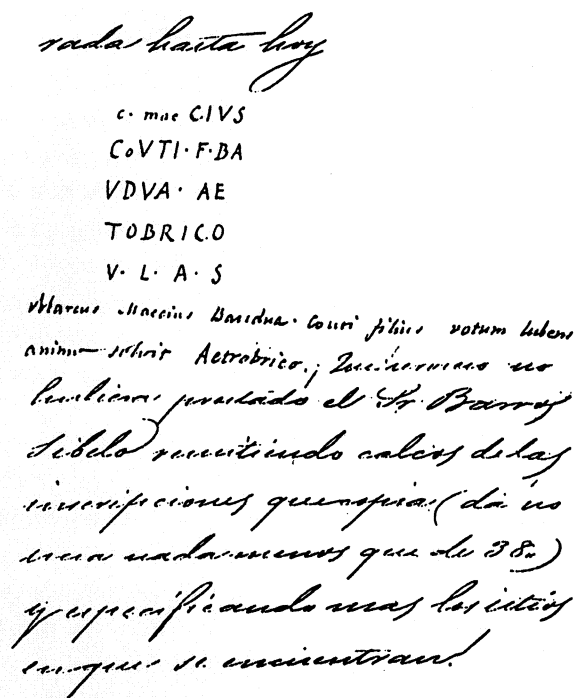 rada hasta hoy
c. mae CIVS
CoVTI·F·BA
VDVA·AE
TOBRICO
V·L·A·S
Marcus Maecius Baudua Couti filius votum lubens
animo solvit Aetobrico.; no
hubiera prestado el Sr Barros
Sibelo remitiendo calcos de las
inscripciones que copia (dá no
ticia nada menos que de 38)
y especificando mas los sitios
en que se encuentran!